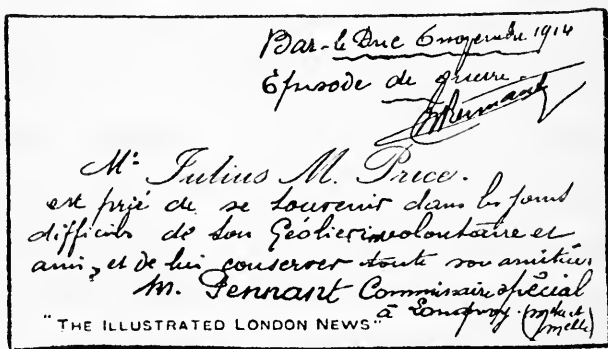 Bar-le Duc 6 novembre 1914
Episode de guerre.
Mr. Julius M. Price.
est prié de se souvenir dans les jours
difficiles de son Géolier involontaire et
ami, et de lui conserver toute son amitié.
M. Pennant Commissaire spécial
à Longwy (Mthe et
"THE ILLUSTRATED LONDON NEWS"
Melle)